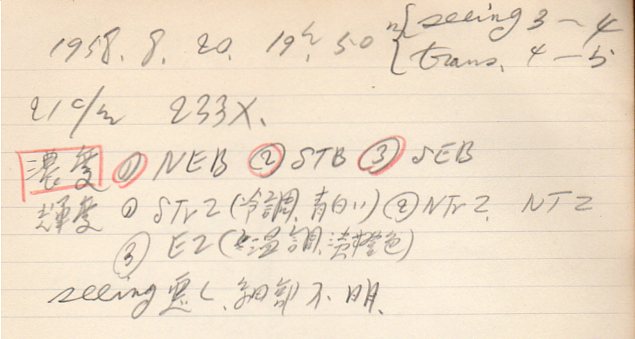 1958. 8. 20. 19h 50m { seeing 3〜4
{ trans. 4−5
21c/m 233X.
濃度 ① NEB ② STB ③ SEB
輝度 ① STrZ (冷調, 青白い) ② NTrZ, NTZ
③ EZ (温調, 淡橙色)
seeing 悪く, 細部不明.